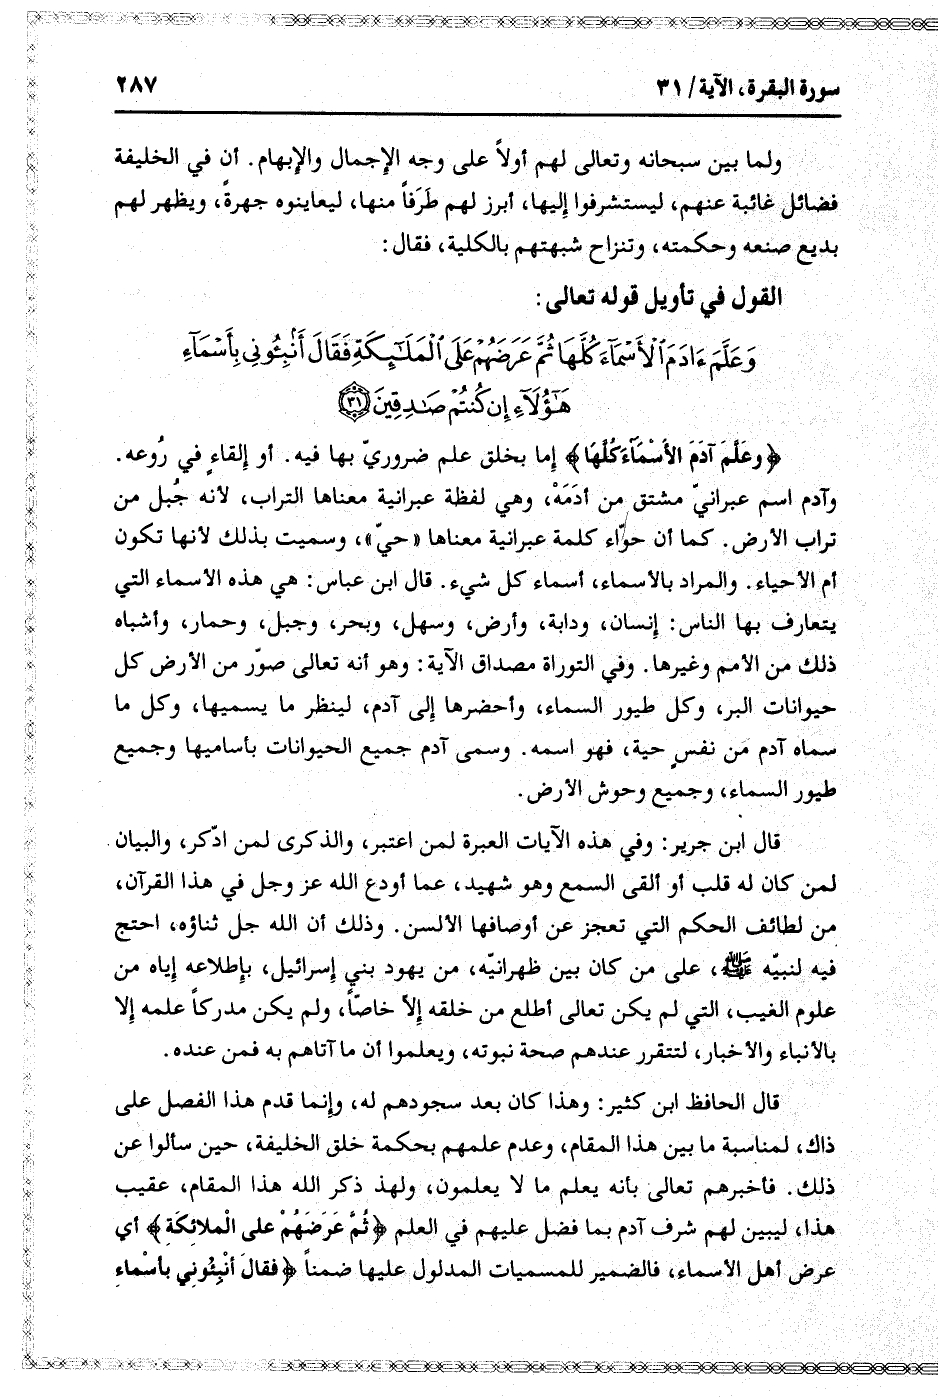 سورة البقرة، الآية/ ٣١
٢٨٧
ولما بين سبحانه وتعالى لهم أولاً على وجه الإجمال والإبهام. أن في الخليفة
فضائل غائبة عنهم، ليستشرفوا إليها، أبرز لهم طَرَفاً منها، ليعاينوه جهرةً، ويظهر لهم
بديع صنعه وحكمته، وتنزاح شبهتهم بالكلية، فقال:
القول في تأويل قوله تعالى:
وَعَلَّمَ ءَادَمَ ٱلْأَسْمَآءَ كُلَّهَا ثُمَّ عَرَضَهُمْ عَلَى ٱلْمَلَٰٓئِكَةِ فَقَالَ أَنۢبِـُٔونِى بِأَسْمَآءِ
هَٰٓؤُلَآءِ إِن كُنتُمْ صَٰدِقِينَ ٣١
﴿وعَلَّمَ آدَمَ الأَسْمَاءَ كُلَّهَا﴾ إما بخلق علم ضروريّ بها فيه. أو إلقاءٍ في رُوعه.
وآدم اسم عبرانيّ مشتق من أدَمَهْ، وهي لفظة عبرانية معناها التراب، لأنه جُبل من
تراب الأرض. كما أن حوّاء كلمة عبرانية معناها «حيّ»، وسميت بذلك لأنها تكون
أم الأحياء. والمراد بالأسماء، أسماء كل شيء. قال ابن عباس: هي هذه الأسماء التي
يتعارف بها الناس: إنسان، ودابة، وأرض، وسهل، وبحر، وجبل، وحمار، وأشباه
ذلك من الأمم وغيرها. وفي التوراة مصداق الآية: وهو أنه تعالى صوّر من الأرض كل
حيوانات البر، وكل طيور السماء، وأحضرها إلى آدم، لينظر ما يسميها، وكل ما
سماه آدم من نفسٍ حية، فهو اسمه. وسمى آدم جميع الحيوانات بأساميها وجميع
طيور السماء، وجميع وحوش الأرض.
قال ابن جرير: وفي هذه الآيات العبرة لمن اعتبر، والذكرى لمن ادّكر، والبيان
لمن كان له قلب أو ألقى السمع وهو شهيد، عما أودع الله عز وجل في هذا القرآن،
من لطائف الحكم التي تعجز عن أوصافها الألسن. وذلك أن الله جل ثناؤه، احتج
فيه لنبيّه ﷺ، على من كان بين ظهرانيّه، من يهود بني إسرائيل، بإطلاعه إياه من
علوم الغيب، التي لم يكن تعالى أطلع من خلقه إلاّ خاصّاً، ولم يكن مدركاً علمه إلا
بالأنباء والأخبار، لتتقرر عندهم صحة نبوته، ويعلموا أن ما آتاهم به فمن عنده.
قال الحافظ ابن كثير: وهذا كان بعد سجودهم له، وإنما قدم هذا الفصل على
ذاك، لمناسبة ما بين هذا المقام، وعدم علمهم بحكمة خلق الخليفة، حين سألوا عن
ذلك. فأخبرهم تعالى بأنه يعلم ما لا يعلمون، ولهذ ذكر الله هذا المقام، عقيب
هذا، ليبين لهم شرف آدم بما فضل عليهم في العلم ﴿ثُمَّ عَرَضَهُمْ على الْملائكَة﴾ أي
عرض أهل الأسماء، فالضمير للمسميات المدلول عليها ضمناً ﴿فقالَ أنْبِئُوني بأسْماء